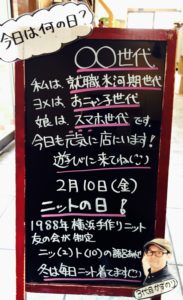 今日は何の日?
〇〇世代
私は、就職氷河期世代
ヨメは、おニャン子世代
娘は、スマホ世代です。
今日も元気に店にいます!
遊びに来てね
2月10日(金)
ニットの日!
1988年横浜手作りニット
友の会が制定
ニッ(2)ト(10)の語呂合わせ
冬は毎日ニット着てます
3代目かずのり